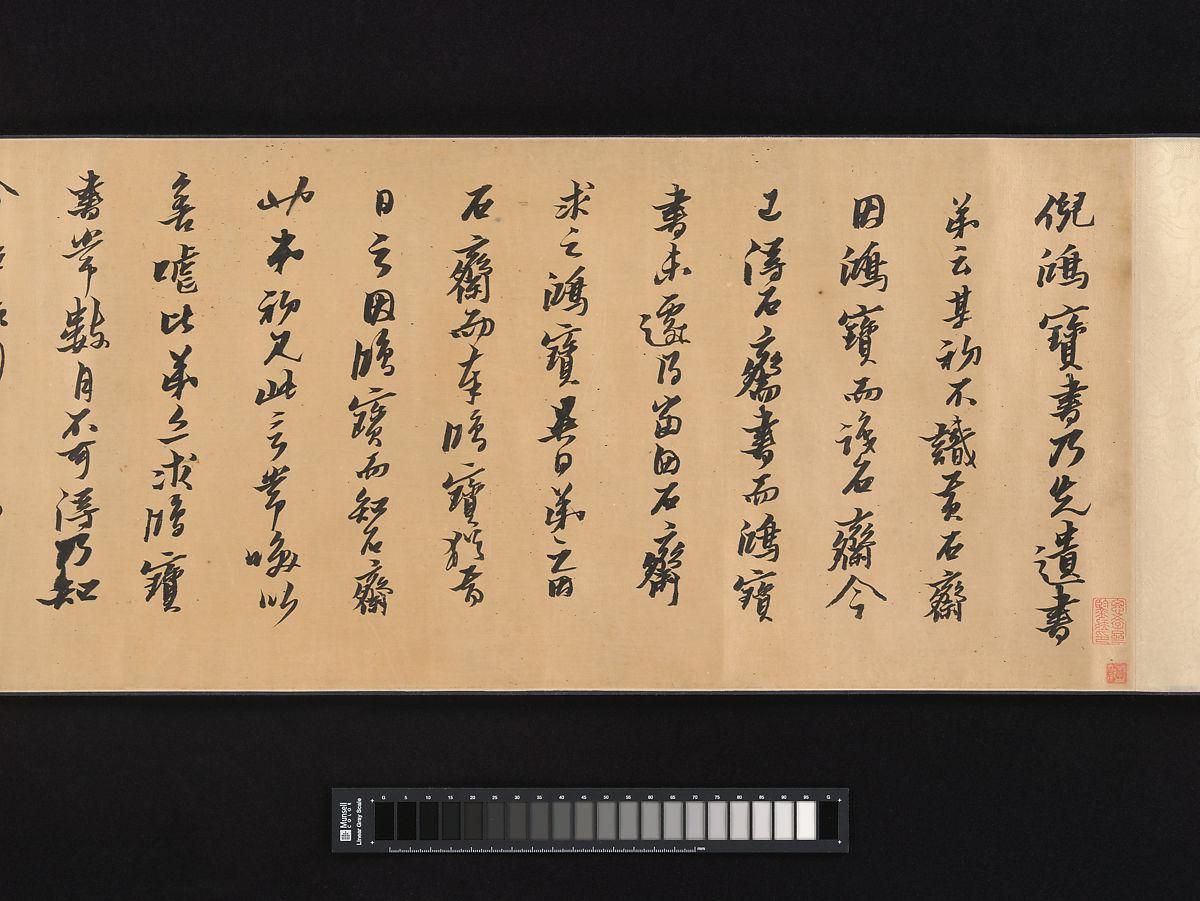 倪鴻寶書乃先遺書
弟云其初不識黃石齋
因鴻寶而識石齋今
又得石齋書而鴻寶
書未遽得當因石齋
求之鴻寶異日弟云因
石齋而來鴻寶猶昔
日云因鴻寶而知石齋
此本初兄此言嘗喚以
吾嘘比弟亦求鴻寶
書嘗數月不可得乃知
Munsell
COLOR
Linear Gray Scale
G 5 10 15 20 25 30 35 40 45 50 55 60 65 70 75 80 85 90 95 G
mm